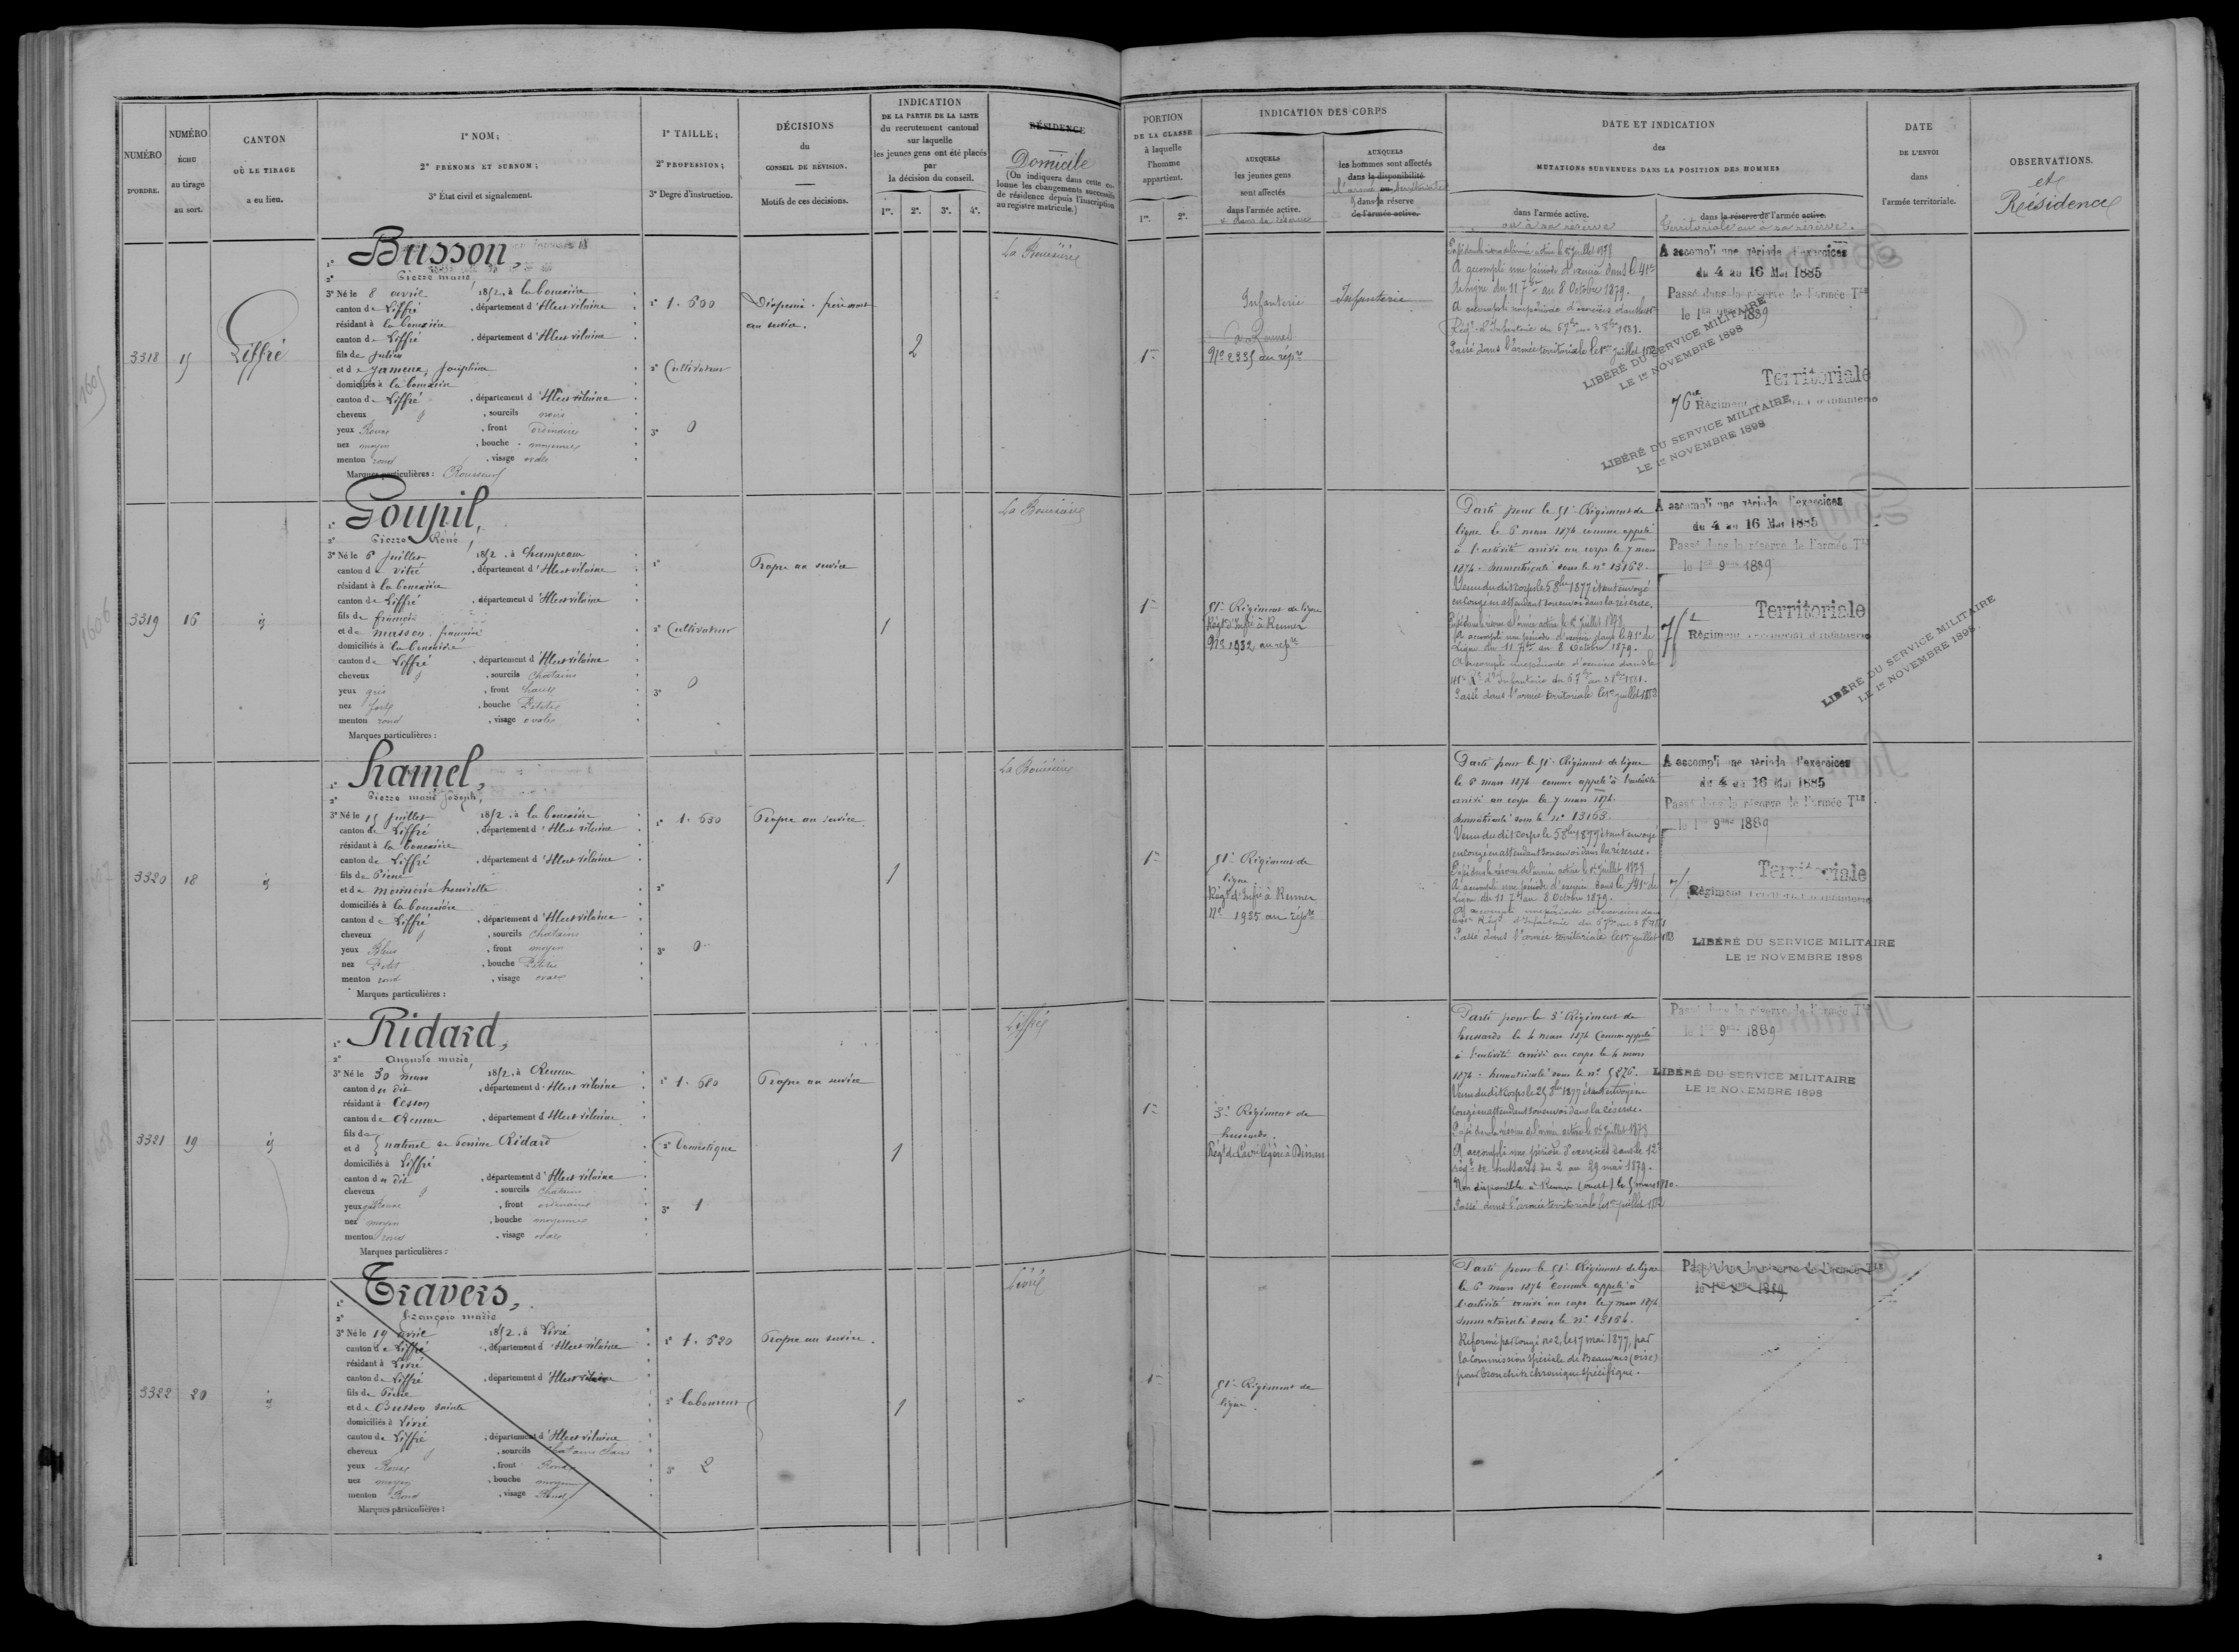 NUMÉRO D'ORDRE.
NUMÉRO ÉCHU au tirage au sort.
CANTON OÙ LE TIRAGE a eu lieu.
1° NOM;
2° PRÉNOMS ET SURNOM;
3° État civil et signalement.
1° TAILLE;
2° PROFESSION;
3° Degré d'instruction.
DÉCISIONS
du
CONSEIL DE RÉVISION.
Motifs de ces décisions.
INDICATION
DE LA PARTIE DE LA LISTE
du recrutement cantonal
sur laquelle
les jeunes gens ont été placés
par
la décision du conseil.
1re. 2e. 3e. 4e.
RÉSIDENCE
Domicile
(On indiquera dans cette colonne les changements successifs de résidence depuis l'inscription au registre matricule.)
PORTION
DE LA CLASSE
à laquelle
l'homme
appartient.
1re. 2e.
INDICATION DES CORPS
AUXQUELS
les jeunes gens
sont affectés
dans l'armée active.
AUXQUELS
les hommes sont affectés
dans la disponibilité
dans la réserve
de l'armée active.
DATE ET INDICATION
des
MUTATIONS SURVENUES DANS LA POSITION DES HOMMES
dans l'armée active.
ou à sa réserve
dans la réserve de l'armée active.
territoriale ou à sa réserve.
DATE
DE L'ENVOI
dans
l'armée territoriale.
OBSERVATIONS.
et
Résidence
3318
15
Liffré
1° Busson,
2° Pierre marie
3° Né le 8 avril 1852, à la bouexière
canton de Liffré, département d'Ille et vilaine
résidant à la bouexière
canton de Liffré, département d'Ille et vilaine
fils de Julien
et de Jameux, Joséphine
domiciliés à la bouexière
canton de Liffré, département d'Ille et vilaine
cheveux, sourcils
yeux Roux, front ordinaire
nez moyen, bouche moyenne
menton rond, visage ovale
Marques particulières: Rousseurs
1° 1.600
2° Cultivateur
3° 0
Dispensé. frère mort
au service.
2
La Bouëxière
1re
Infanterie
à Rennes
No 2335 au répre
Infanterie
Passé dans la réserve de l'armée active le 1er juillet 1878
A accompli une période d'exercices dans le 41e
de ligne du 11 7bre au 8 Octobre 1879.
Passé dans l'armée territoriale le 1er juillet 1883
A accompli une période d'exercices
du 4 au 16 Mai 1885
Passé dans la réserve de l'armée Tle
le 1er 9bre 1889
LIBÉRÉ DU SERVICE MILITAIRE
LE 1er NOVEMBRE 1898
Territoriale
76e Régiment territorial d'infanterie
LIBÉRÉ DU SERVICE MILITAIRE
LE 1er NOVEMBRE 1898
3319
16
id
1° Goupil,
2° Pierre René,
3° Né le 6 juillet 1852, à Champeaux
canton de Vitré, département d'Ille et vilaine
résidant à la bouexière
canton de Liffré, département d'Ille et vilaine
fils de françois
et de musson. françoise
domiciliés à la bouexière
canton de Liffré, département d'Ille et vilaine
cheveux, sourcils Chatains
yeux gris, front haut
nez fort, bouche Petite
menton rond, visage ovale
Marques particulières:
1°
2° Cultivateur
3° 0
Propre au service
1
La Bouëxière
1re
51e Régiment de ligne
Régt d'Infie à Rennes
No 1952 au répre
Parti pour le 51e Régiment de
ligne le 6 mars 1874 comme appelé
à l'activité arrivé au corps le 7 mars
1874. Immatriculé sous le no 13162.
Venu dudit corps le 5 8bre 1877 étant envoyé
en congé en attendant son envoi dans la réserve.
Passé dans la réserve de l'armée active le 1er juillet 1878
A accompli une période d'exercices dans le 41e de
Ligne du 11 7bre au 8 Octobre 1879.
Passé dans l'armée territoriale le 1er juillet 1883
A accompli une période d'exercices
du 4 au 16 Mai 1885
Passé dans la réserve de l'armée Tle
le 1er 9bre 1889
Territoriale
Régiment territorial d'infanterie
LIBÉRÉ DU SERVICE MILITAIRE
LE 1er NOVEMBRE 1898
3320
18
id
1° hamel,
2° Pierre marie Joseph,
3° Né le 15 juillet 1852, à la bouexière
canton de Liffré, département d'Ille et vilaine
résidant à la bouexière
canton de Liffré, département d'Ille et vilaine
fils de Pierre
et de henriette
domiciliés à la bouexière
canton de Liffré, département d'Ille et vilaine
cheveux, sourcils Chatains
yeux Bleus, front moyen
nez Petit, bouche Petite
menton rond, visage ovale
Marques particulières:
1° 1.630
2°
3° 0
Propre au service
1
La Bouëxière
1re
51e Régiment de
ligne
Régt d'Infie à Rennes
No 1955 au répre
Parti pour le 51e Régiment de ligne
le 6 mars 1874 comme appelé à l'activité
arrivé au corps le 7 mars 1874.
Immatriculé sous le no 13163.
Venu dudit corps le 5 8bre 1877 étant envoyé
en congé en attendant son envoi dans la réserve.
Passé dans la réserve de l'armée active le 1er juillet 1878
A accompli une période d'exercices dans le 41e de
Ligne du 11 7bre au 8 Octobre 1879.
Passé dans l'armée territoriale le 1er juillet 1883
A accompli une période d'exercices
du 4 au 16 Mai 1885
Passé dans la réserve de l'armée Tle
le 1er 9bre 1889
Territoriale
Régiment territorial d'infanterie
LIBÉRÉ DU SERVICE MILITAIRE
LE 1er NOVEMBRE 1898
3321
19
id
1° Ridard,
2° Auguste marie,
3° Né le 30 mars 1852, à Rennes
canton du dit, département d'Ille et vilaine
résidant à Cesson
canton de Rennes, département d'Ille et vilaine
fils de
et d naturel de Perrine Ridard
domiciliés à Liffré
canton du dit, département d'Ille et vilaine
cheveux, sourcils Chatains
yeux, front ordinaire
nez moyen, bouche moyenne
menton rond, visage ovale
Marques particulières:
1° 1.680
2° Domestique
3° 1
Propre au service
1
Liffré
1re
3e Régiment de
hussards.
Régt de Cavie légère à Dinan
Parti pour le 3e Régiment de
hussards le 4 mars 1874 comme appelé
à l'activité arrivé au corps le 4 mars
1874. Immatriculé sous le no 5276.
Venu dudit corps le 25 8bre 1877 étant envoyé en
congé en attendant son envoi dans la réserve.
Passé dans la réserve de l'armée active le 1er juillet 1878
A accompli une période d'exercices dans le 12e
régt de hussards du 2 au 29 mai 1879.
Non disponible à Rennes (ouest) le 5 mars 1880.
Passé dans l'armée territoriale le 1er juillet 1883
Passé dans la réserve de l'armée Tle
le 1er 9bre 1889
LIBÉRÉ DU SERVICE MILITAIRE
LE 1er NOVEMBRE 1898
3322
20
id
1° Travers,
2° François marie
3° Né le 19 avril 1852, à Livré
canton de Liffré, département d'Ille et vilaine
résidant à Livré
canton de Liffré, département d'Ille et vilaine
fils de Pierre
et de Busson Sainte
domiciliés à Livré
canton de Liffré, département d'Ille et vilaine
cheveux, sourcils Chatains clairs
yeux Roux, front Rond
nez moyen, bouche moyenne
menton Rond, visage Rond
Marques particulières:
1° 1.520
2° laboureur
3° 2
Propre au service.
1
Livré
1re
51e Régiment de
ligne.
Parti pour le 51e Régiment de ligne
le 6 mars 1874 comme appelé à
l'activité arrivé au corps le 7 mars 1874
Immatriculé sous le no 13164.
Réformé par congé no 2, le 17 mai 1877, par
la Commission spéciale de Beauvais (oise)
pour bronchite chronique spécifique.
Passé dans la réserve de l'armée Tle
le 1er 9bre 1889
1605
1606